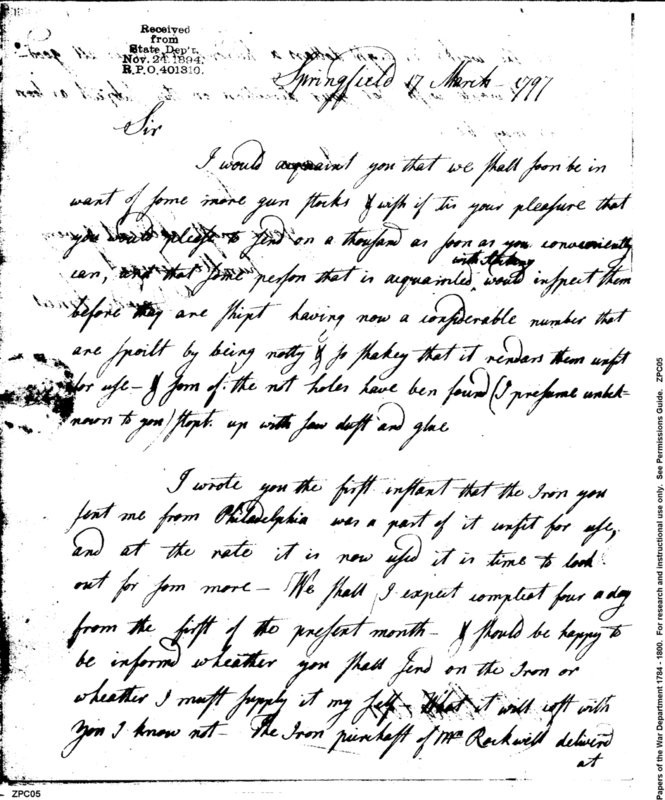 Received
from
State Dep't.
Nov. 24. 1894.
R.P.O. 401310.
Springfield 17 March 1797
Sir
I would acquaint you that we shall soon be in
want of some more gun stocks & wish if tis your pleasure that
you would please to send on a thousand as soon as you conveniently
with stocking
can, and that some person that is acquainted would inspect them
before they are shipt having now a considerable number that
are spoilt by being notty & so shakey that it rendars them unfit
for use – & som of the not holes have ben found (I presume unbek-
nown to you) stopt. up with saw dust and glue
I wrote you the first instant that the Iron you
sent me from Philadelphia was a part of it unfit for use,
and at the rate it is now used it is time to look
out for som more – We shall I expect compleat four a day
from the first of the present month – & should be happy to
be informd wheather you shall send on the Iron or
wheather I must supply it my self – What it will cost with
you I know not – The Iron purchast of Mr Rockwell deliverd
at
ZPC05
Papers of the War Department 1784 - 1800. For research and instructional use only. See Permissions Guide. ZPC05